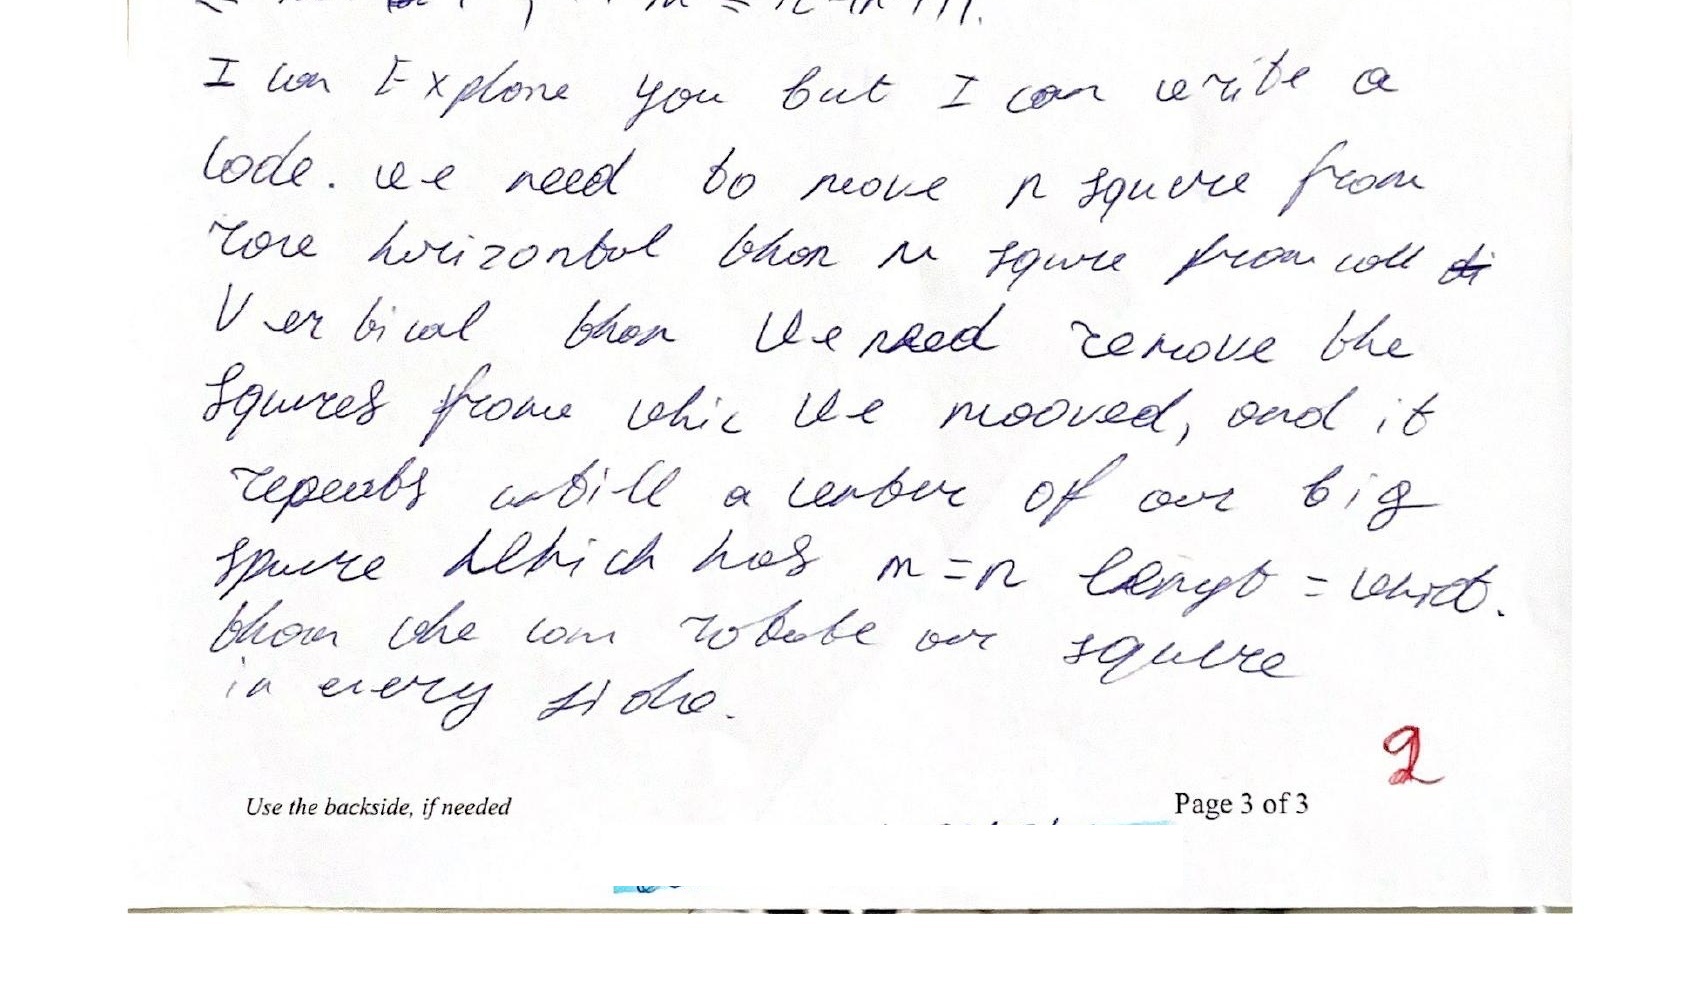 I can Explone you but I can write a
code. we need to move n squere from
rore horizontal than m squre from coll
Vertical than We need remove the
squres frome whic We mooved, and it
repeats untill a center of our big
squre Which has m=n lengt = whidt.
than whe can rotate our squere
in every side.
2
Use the backside, if needed
Page 3 of 3